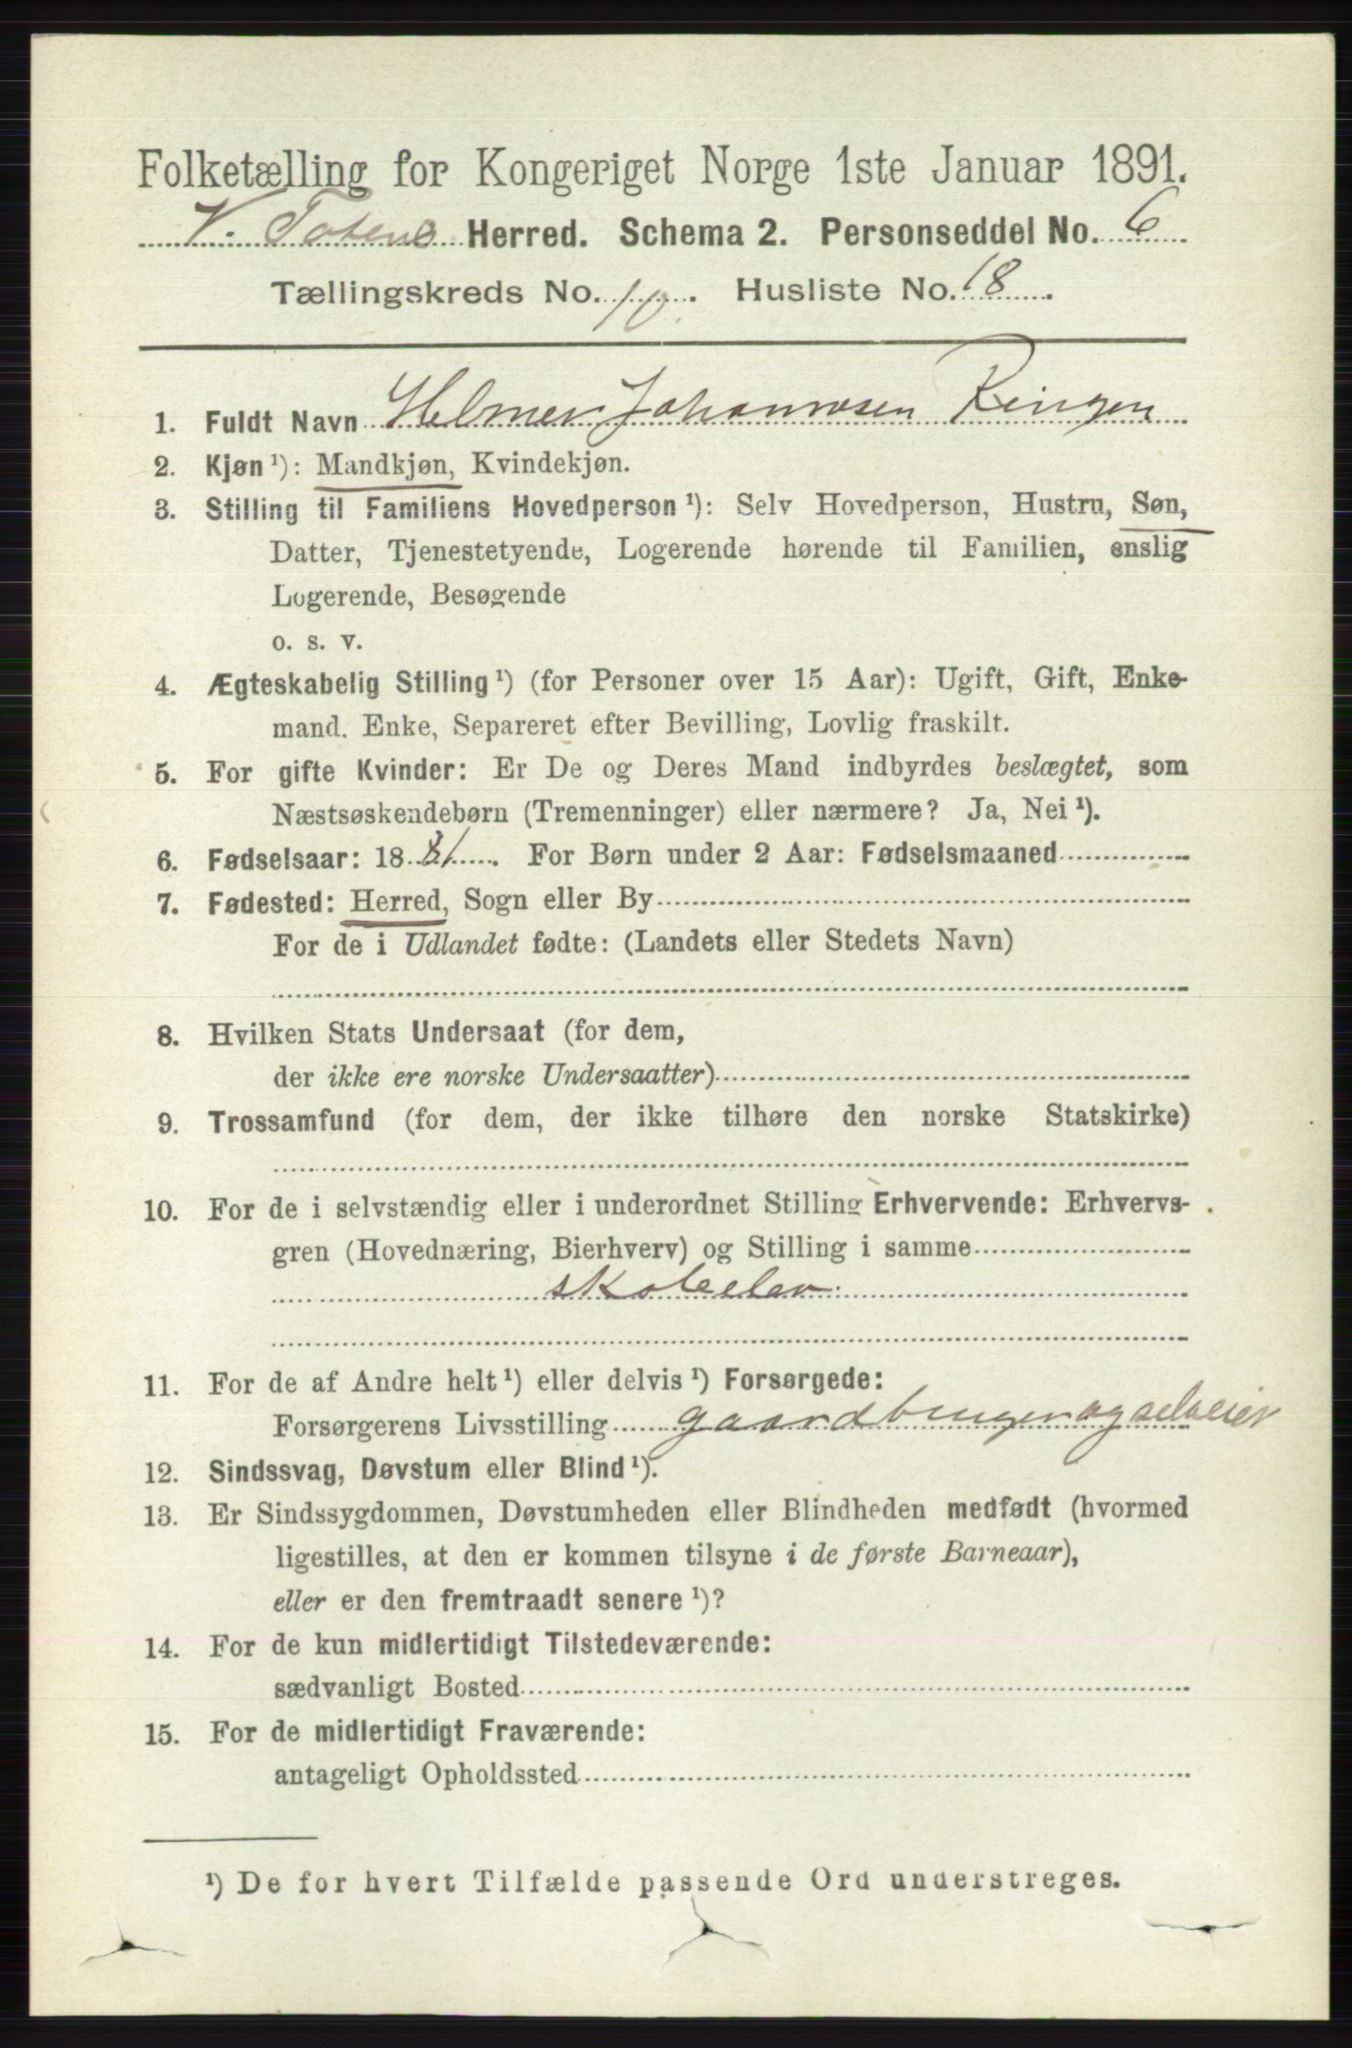 Folketælling for Kongeriget Norge 1ste Januar 1891.
V. Totens Herred. Schema 2. Personseddel No. 6
Tællingskreds No. 10. Husliste No. 18.
1. Fuldt Navn Helmer Johannesen Ringen
2. Kjøn ¹): Mandkjøn, Kvindekjøn.
3. Stilling til Familiens Hovedperson ¹): Selv Hovedperson, Hustru, Søn,
Datter, Tjenestetyende, Logerende hørende til Familien, enslig
Logerende, Besøgende
o. s. v.
4. Ægteskabelig Stilling ¹) (for Personer over 15 Aar): Ugift, Gift, Enke-
mand, Enke, Separeret efter Bevilling, Lovlig fraskilt.
5. For gifte Kvinder: Er De og Deres Mand indbyrdes beslægtet, som
Næstsøskendebørn (Tremenninger) eller nærmere? Ja, Nei ¹).
6. Fødselsaar: 1881. For Børn under 2 Aar: Fødselsmaaned
7. Fødested: Herred, Sogn eller By
For de i Udlandet fødte: (Landets eller Stedets Navn)
8. Hvilken Stats Undersaat (for dem,
der ikke ere norske Undersaatter)
9. Trossamfund (for dem, der ikke tilhøre den norske Statskirke)
10. For de i selvstændig eller i underordnet Stilling Erhvervende: Erhvervs-
gren (Hovednæring, Bierhverv) og Stilling i samme
skoleelev.
11. For de af Andre helt ¹) eller delvis ¹) Forsørgede:
Forsørgerens Livsstilling gaardbruger og selveier
12. Sindssvag, Døvstum eller Blind ¹).
13. Er Sindssygdommen, Døvstumheden eller Blindheden medfødt (hvormed
ligestilles, at den er kommen tilsyne i de første Barneaar),
eller er den fremtraadt senere ¹)?
14. For de kun midlertidigt Tilstedeværende:
sædvanligt Bosted
15. For de midlertidigt Fraværende:
antageligt Opholdssted
¹) De for hvert Tilfælde passende Ord understreges.